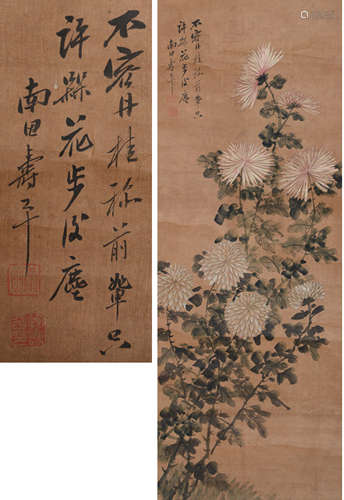 不容丹桂称前輩只
许梨花步後塵
南田壽平
不容丹桂称前輩只
许梨花步後塵
南田壽平